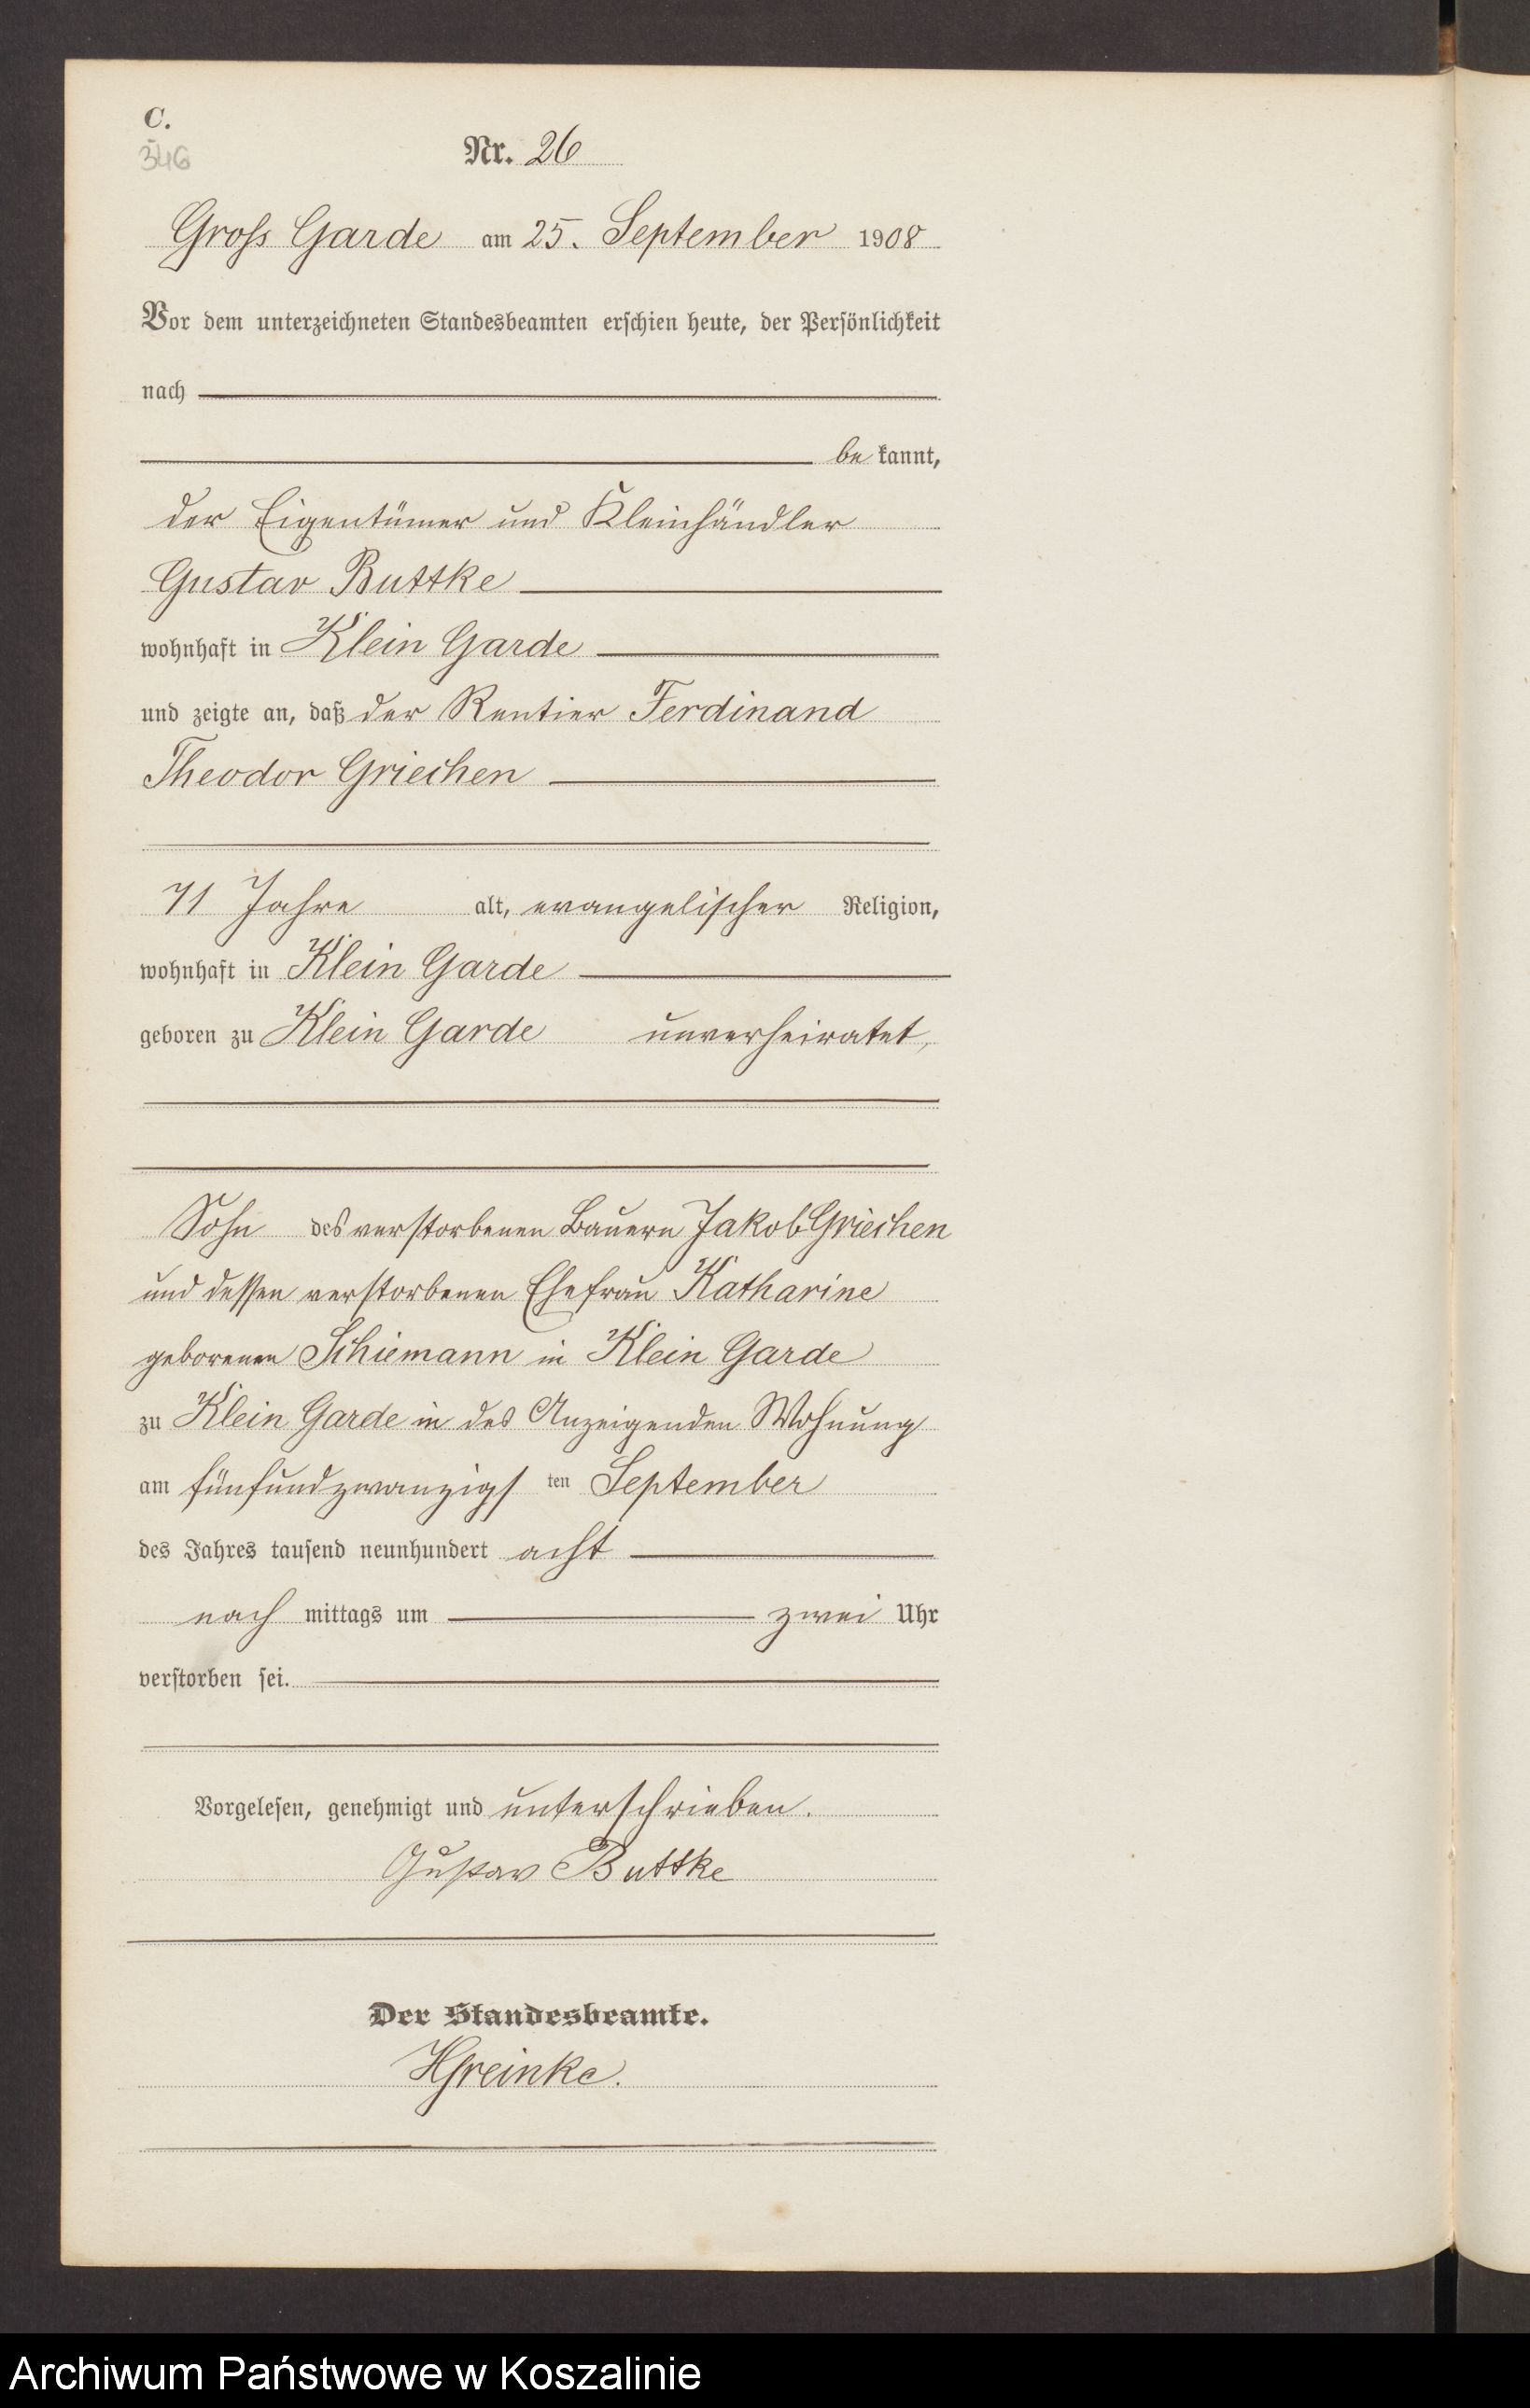 C.
346
Nr. 26
Gross Garde am 25. September 1908
Vor dem unterzeichneten Standesbeamten erschien heute, der Persönlichkeit
nach
be kannt,
der Eigentümer und Kleinhändler
Gustav Buttke
wohnhaft in Klein Garde
und zeigte an, daß der Rentier Ferdinand
Theodor Griechen
71 Jahre alt, evangelischer Religion,
wohnhaft in Klein Garde
geboren zu Klein Garde unverheiratet,
Sohn des verstorbenen Bauern Jakob Griechen
und dessen verstorbenen Ehefrau Katharine
geborenen Schiemann in Klein Garde
zu Klein Garde in des Anzeigenden Wohnung
am fünfundzwanzigs ten September
des Jahres tausend neunhundert acht
nach mittags um zwei Uhr
verstorben sei.
Vorgelesen, genehmigt und unterschrieben.
Gustav Buttke
Der Standesbeamte.
HGreinke.
Archiwum Państwowe w Koszalinie